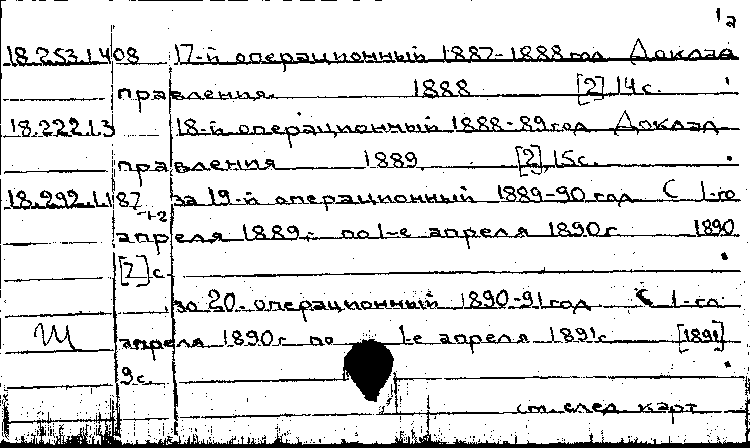 1а
18.253.1.408 17-й операционный 1887-1888 год Доклад
правления. 1888 [2], 14 с.
18.222.1.3 18-й операционный 1888-89 год Доклад
правления 1889. [2], 15 с.
18.292.1.187 за 19-й операционный 1889-90 год С 1-го
+2
апреля 1889 г. по 1-е апреля 1890 г. 1890
[7] с.
за 20-операционный 1890-91 год С 1-го
Ш апреля 1890 г по 1-е апреля 1891 г. [1891]
9 с.
см. след. карт